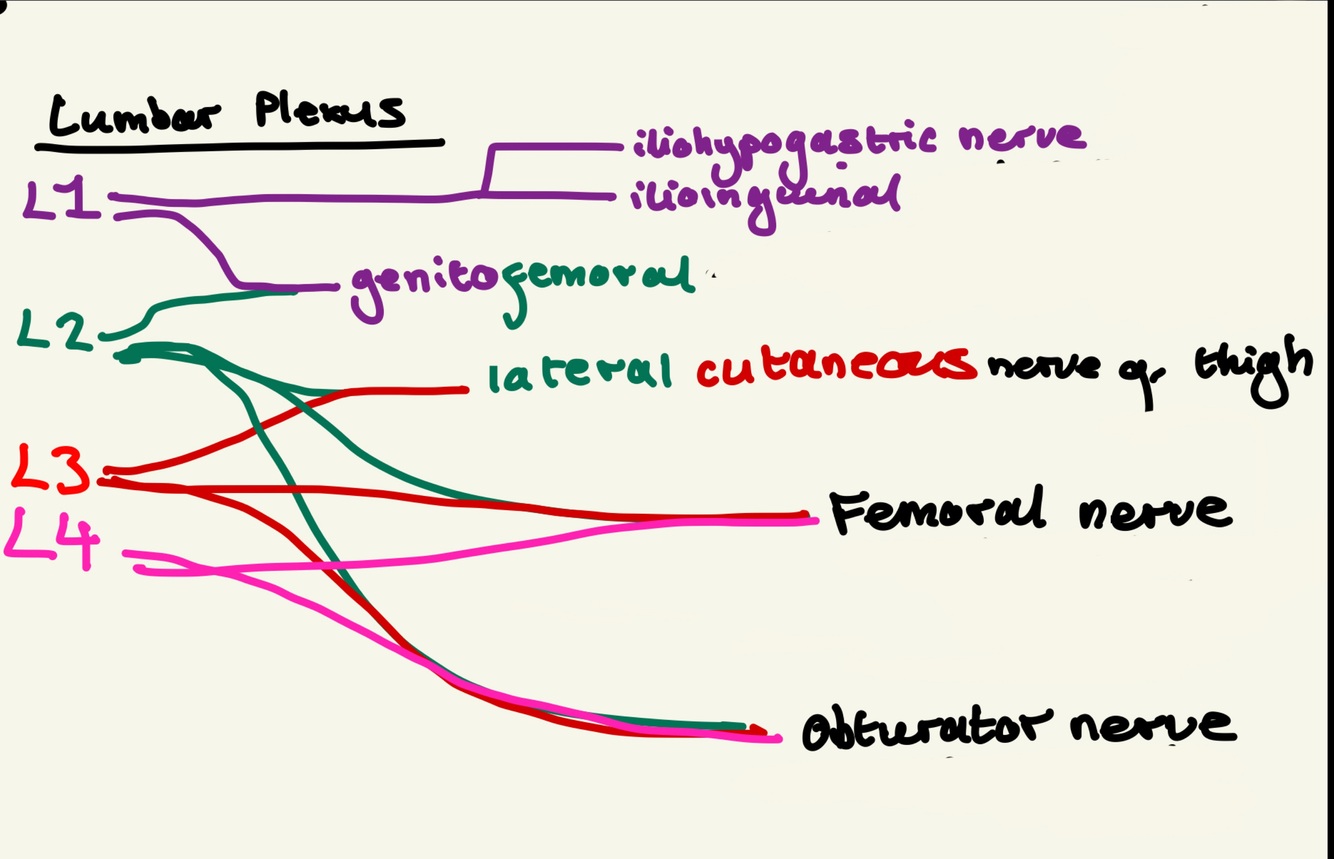 Lumbar Plexus
iliohypogastric nerve
L1
ilioinguinal
genitofemoral
L2
lateral cutaneous nerve of thigh
L3
Femoral nerve
L4
Obturator nerve